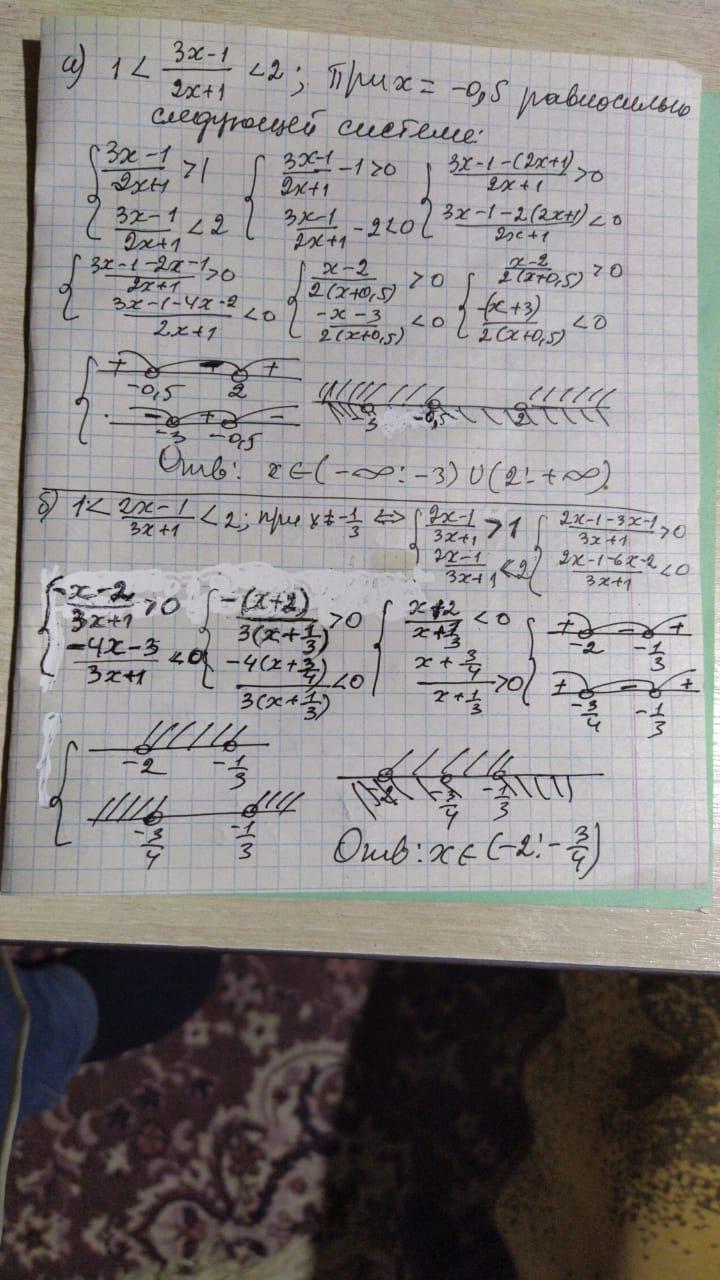 а) 1 < (3x-1)/(2x+1) < 2; При x = -0,5 равносильно
следующей системе:
{ (3x-1)/(2x+1) > 1 { (3x-1)/(2x+1) - 1 > 0 { (3x-1-(2x+1))/(2x+1) > 0
(3x-1)/(2x+1) < 2 (3x-1)/(2x+1) - 2 < 0 (3x-1-2(2x+1))/(2x+1) < 0
{ (3x-1-2x-1)/(2x+1) > 0 { (x-2)/(2(x+0,5)) > 0 { (x-2)/(2(x+0,5)) > 0
(3x-1-4x-2)/(2x+1) < 0 (-x-3)/(2(x+0,5)) < 0 (-(x+3))/(2(x+0,5)) < 0
{ + - +
-0,5 2
- + -
-3 -0,5
-3 -0,5 2
Отв: x ∈ (-∞; -3) ∪ (2; +∞).
б) 1 < (2x-1)/(3x+1) < 2; при x ≠ -1/3 ⇔ { (2x-1)/(3x+1) > 1 { (2x-1-3x-1)/(3x+1) > 0
(2x-1)/(3x+1) < 2 (2x-1-6x-2)/(3x+1) < 0
{ (-x-2)/(3x+1) > 0 { (-(x+2))/(3(x+1/3)) > 0 { (x+2)/(x+1/3) < 0 { + - +
-2 -1/3
(-4x-3)/(3x+1) < 0 (-4(x+3/4))/(3(x+1/3)) < 0 (x+3/4)/(x+1/3) > 0 + - +
-3/4 -1/3
{ -2 -1/3
-3/4 -1/3
-2 -3/4 -1/3
Отв: x ∈ (-2; -3/4)